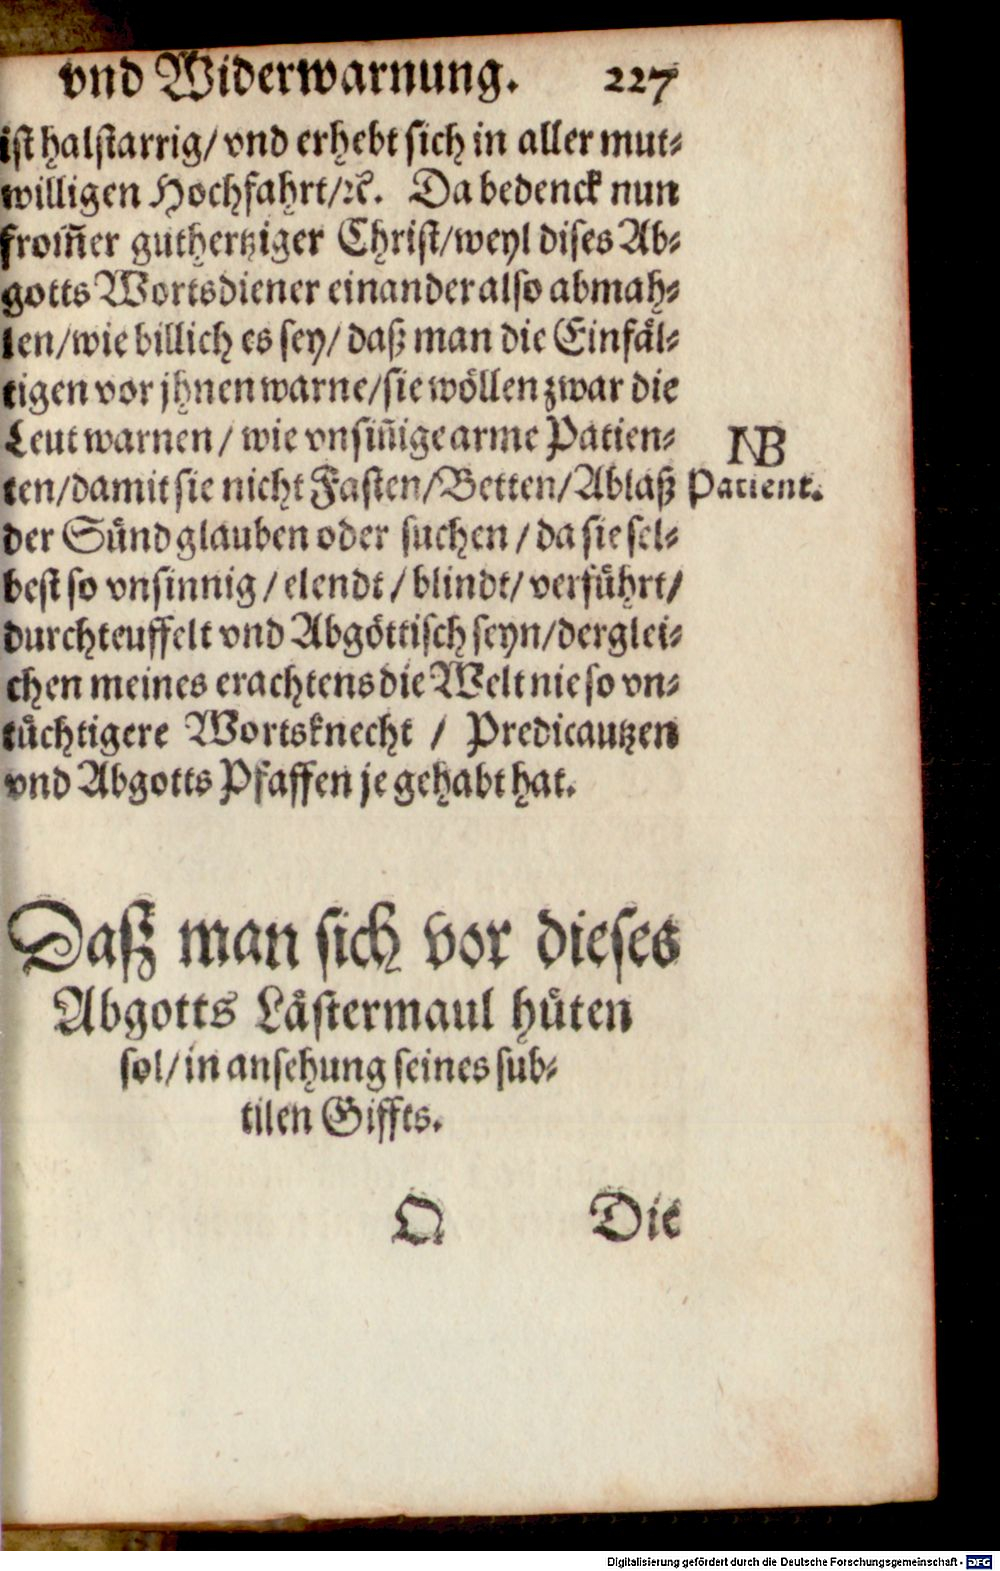 vnd Widerwarnung. 227
ist halstarrig/ vnd erhebt sich in aller mut⸗
willigen Hochfahrt/ꝛc. Da bedenck nun
from̃er guthertziger Christ/weyl dises Ab⸗
gotts Wortsdiener einander also abmah⸗
len/wie billich es sey/ daß man die Einfaͤl⸗
tigen vor jhnen warne/sie woͤllen zwar die
Leut warnen/ wie vnsiñige arme Patien⸗
NB
ten/damit sie nicht Fasten/Betten/Ablaß Patient.
der Suͤnd glauben oder suchen/ da sie sel⸗
best so vnsinnig/ elendt/ blindt/ verfuͤhrt/
durchteuffelt vnd Abgoͤttisch seyn/derglei⸗
chen meines erachtens die Welt nie so vn⸗
tuͤchtigere Wortsknecht / Predicautzen
vnd Abgotts Pfaffen je gehabt hat.
Daß man sich vor dieses
Abgotts Laͤstermaul huͤten
sol/in ansehung seines sub⸗
tilen Giffts.
Q Die
Digitalisierung gefördert durch die Deutsche Forschungsgemeinschaft - DFG